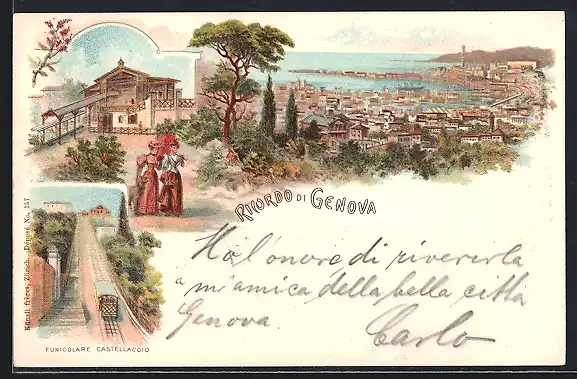 RICORDO DI GENOVA
Ho l'onore di riverirla
a m'amica della bella città
Genova.
Carlo
FUNICOLARE CASTELLACCIO
Künzli frères, Zürich. Déposé No. 157